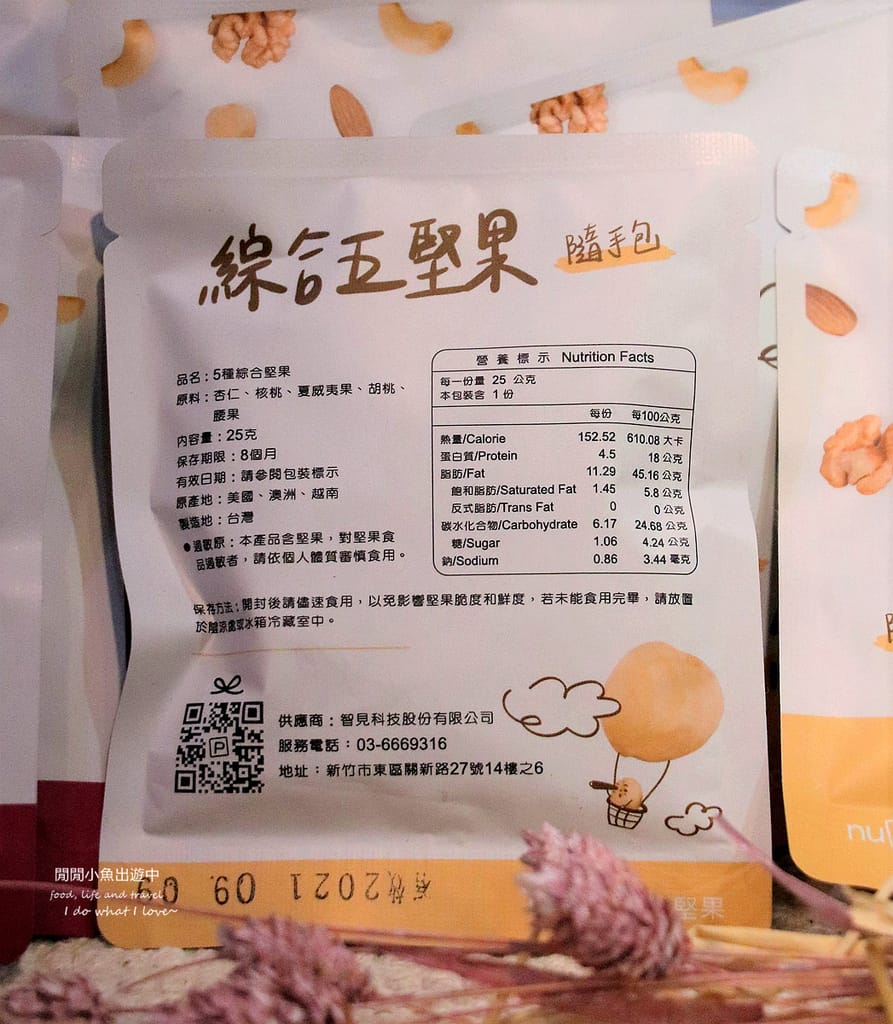 綜合五堅果 隨手包
品名：5種綜合堅果
原料：杏仁、核桃、夏威夷果、胡桃、
腰果
內容量：25克
保存期限：8個月
有效日期：請參閱包裝標示
原產地：美國、澳洲、越南
製造地：台灣
●過敏原：本產品含堅果，對堅果食
品過敏者，請依個人體質審慎食用。
營養標示 Nutrition Facts
每一份量 25 公克
本包裝含 1 份
每份 每100公克
熱量/Calorie 152.52 610.08 大卡
蛋白質/Protein 4.5 18 公克
脂肪/Fat 11.29 45.16 公克
飽和脂肪/Saturated Fat 1.45 5.8 公克
反式脂肪/Trans Fat 0 0 公克
碳水化合物/Carbohydrate 6.17 24.68 公克
糖/Sugar 1.06 4.24 公克
鈉/Sodium 0.86 3.44 毫克
保存方法：開封後請儘速食用，以免影響堅果脆度和鮮度，若未能食用完畢，請放置
於陰涼處或冰箱冷藏室中。
供應商：智見科技股份有限公司
服務電話：03-6669316
地址：新竹市東區關新路27號14樓之6
有效2021 09 09
堅果
nu
閒閒小魚出遊中
food, life and travel
I do what I love~